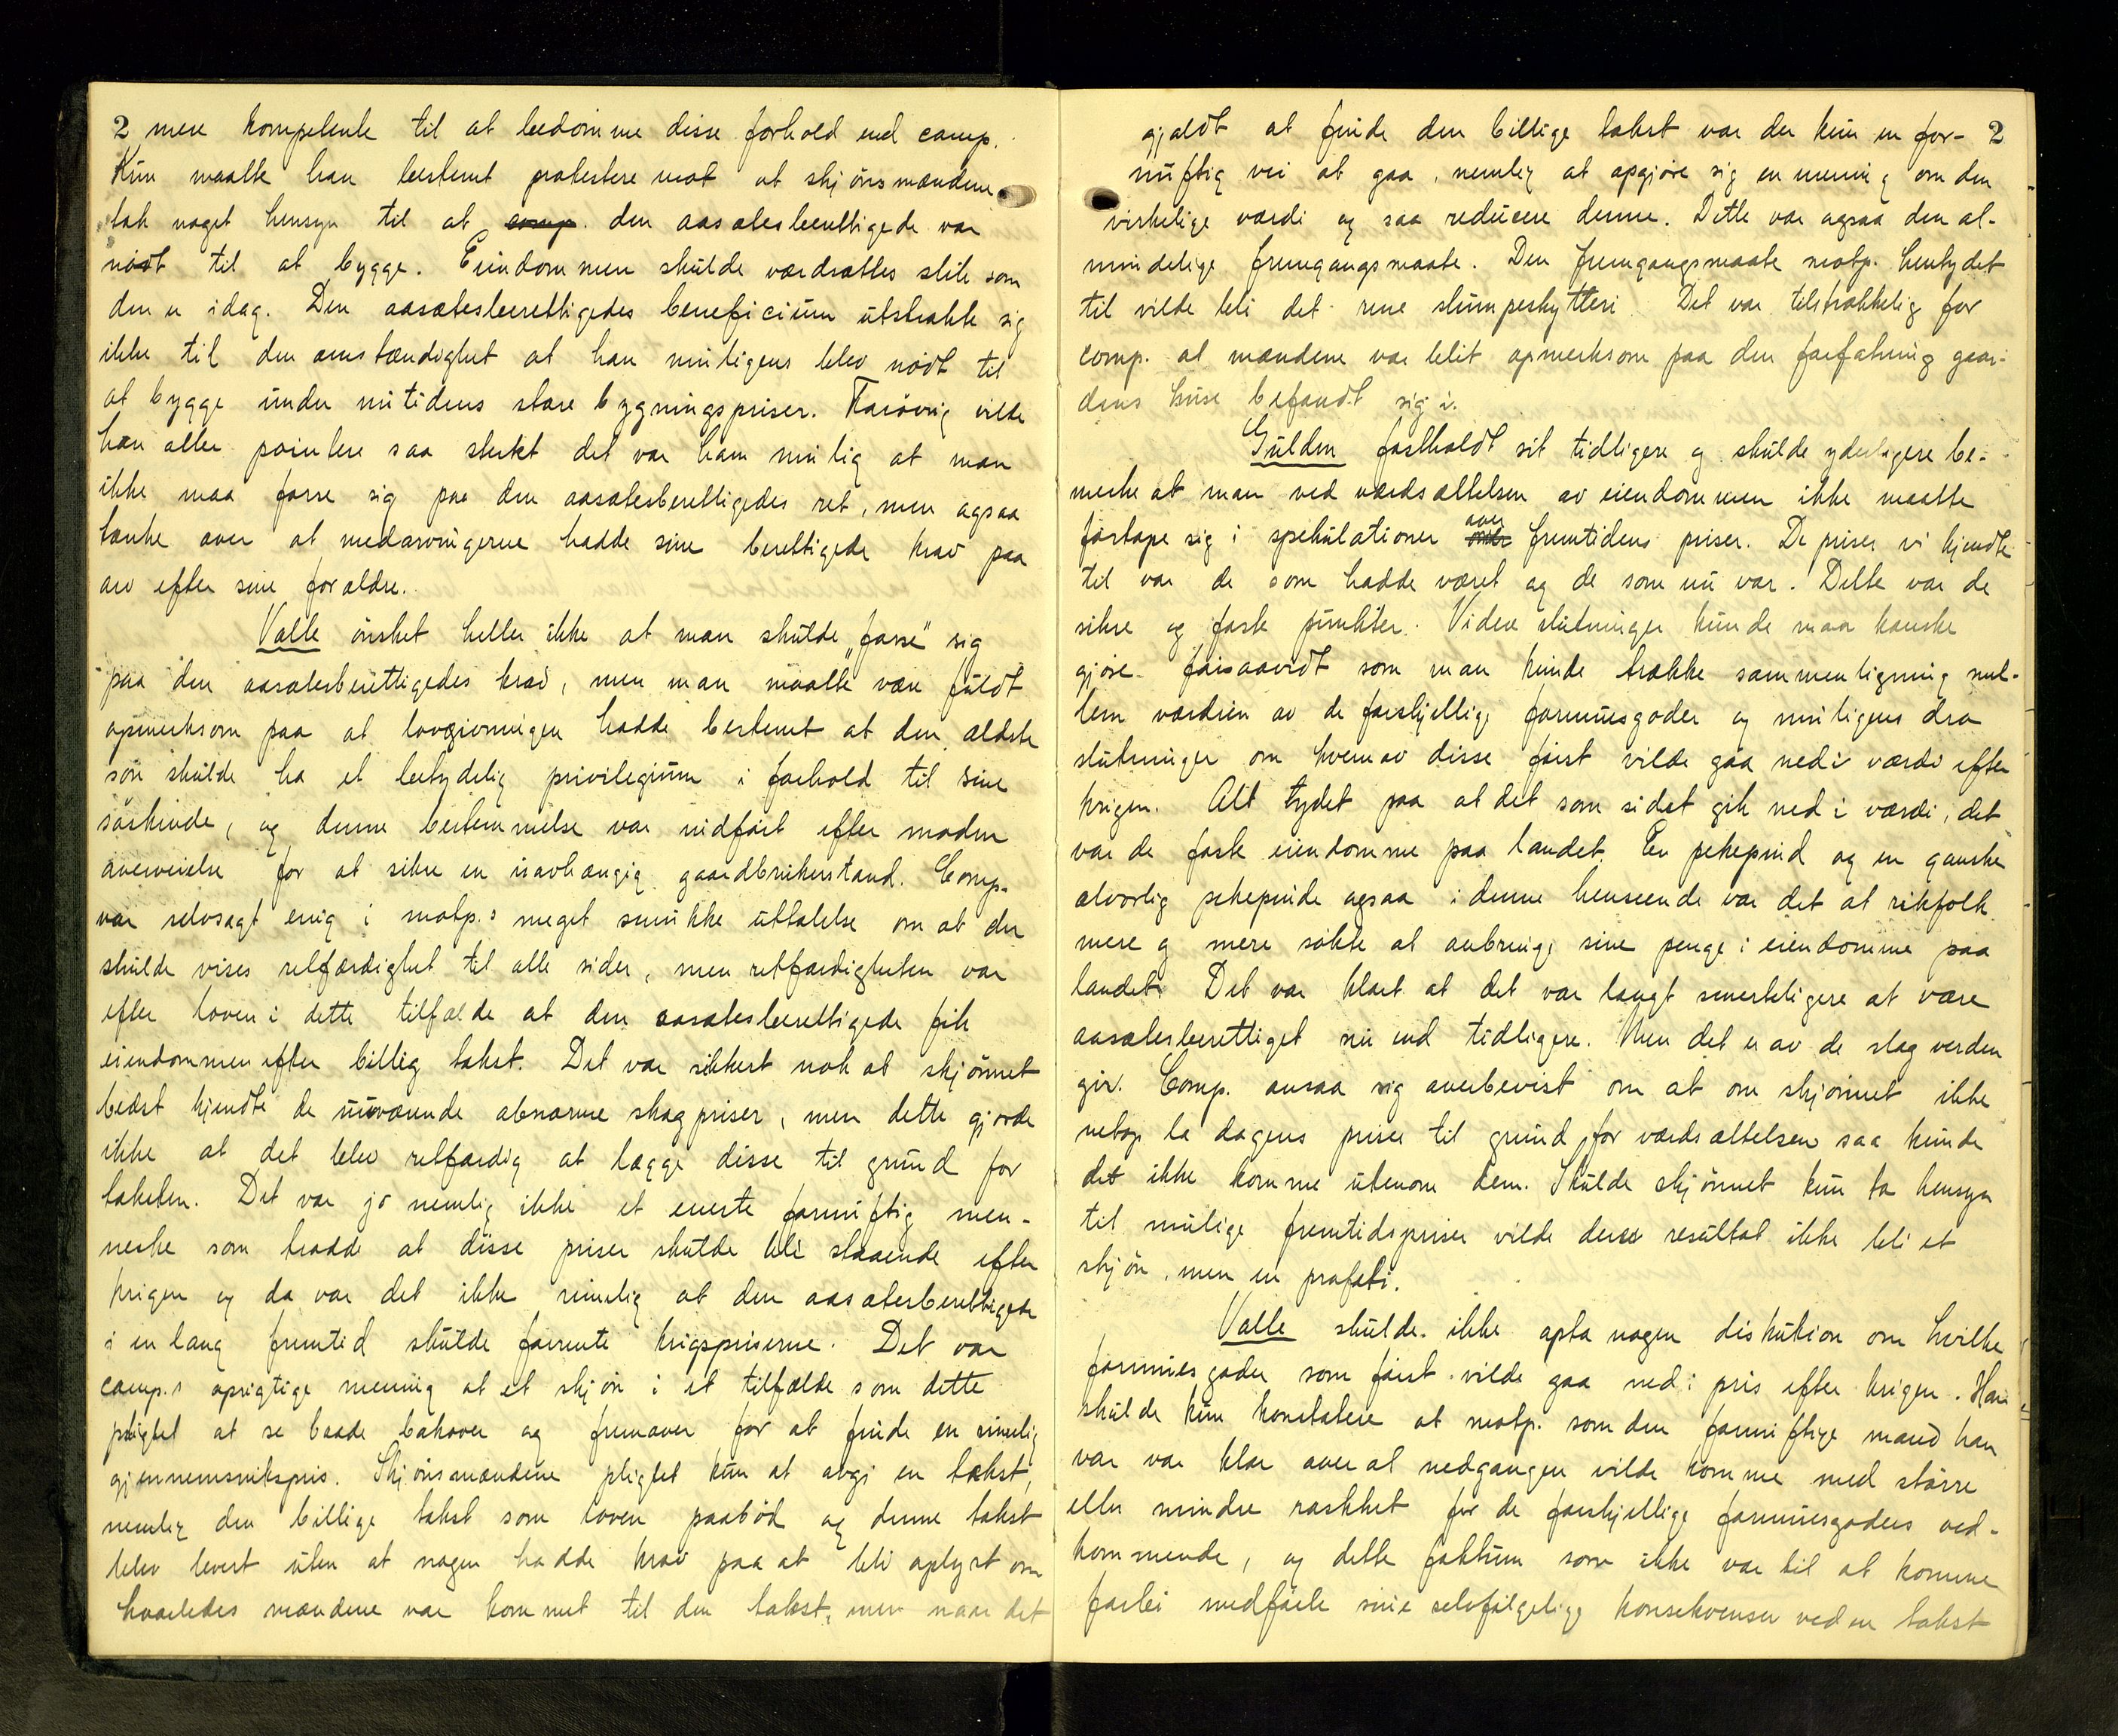 2 mere kompetente til at bedömme disse forhold end comp.
Kun maatte han bestemt protestere mot at skjönsmændene
tok noget hensyn til at comp. den aasætesberettigede var
nödt til at bygge. Eiendommen skulde værdsættes slik som
den er idag. Den aasætesberettigedes beneficium utstrakte sig
ikke til den omstændighet at han muligens blev nödt til
at bygge under nutidens store bygningspriser. Forövrig vilde
han aller pointere saa sterkt det var ham mulig at man
ikke maa forse sig paa den aasætesberettigedes ret, men ogsaa
tænke over at medarvingerne hadde sine berettigede krav paa
arv efter sine forældre.
Valle önsket heller ikke at man skulde „forse" sig
paa den aasætesberettigedes krav, men man maatte være fuldt
opmerksom paa at lovgivningen hadde bestemt at den ældste
sön skulde ha et betydelig privilegium i forhold til sine
söskende, og denne bestemmelse var indfört efter moden
overveielse for at sikre en uavhængig gaardbrukerstand. Comp.
var selvsagt enig i motp.s meget smukke uttalelse om at der
skulde vises retfærdighet til alle sider, men retfærdigheten var
efter loven i dette tilfælde at den aasætesberettigede fik
eiendommen efter billig takst. Det var sikkert nok at skjönnet
bedst kjendte de nuværende abnorme skogpriser, men dette gjorde
ikke at det blev retfærdig at lægge disse til grund for
taksten. Det var jo nemlig ikke et eneste fornuftig men-
neske som trodde at disse priser skulde bli staaende efter
krigen og da var det ikke rimelig at den aasætesberettigede
i en lang fremtid skulde forrente krigspriserne. Det var
comp.s oprigtige mening at et skjön i et tilfælde som dette
pligtet at se baade bakover og fremover for at finde en rimelig
gjennemsnitspris. Skjönsmændene pligtet kun at avgi en takst,
nemlig den billige takst som loven paabød og denne takst
blev levert uten at nogen hadde krav paa at bli oplyst om
hvorledes mændene var kommet til den takst, men naar det
gjaldt at finde den billige takst var der kun en for- 2
nuftig vei at gaa, nemlig at opgjöre sig en mening om den
virkelige værdi og saa reducere denne. Dette var ogsaa den al-
mindelige fremgangsmaate. Den fremgangsmaate motp. hentydet
til vilde bli det rene slumpeskytteri. Det var tilstrækkelig for
comp. at mændene var blit opmerksom paa den forfatning gaar-
dens huse befandt sig i.
Gulden fastholdt sit tidligere og skulde yderligere be-
merke at man ved værdsættelsen av eiendommen ikke maatte
fortape sig i spekulationer over fremtidens priser. De priser vi kjendte
til var de som hadde været og de som nu var. Dette var de
sikre og faste punkter. Videre slutninger kunde man kanske
gjöre forsaavidt som man kunde trække sammenligning mel-
lem værdien av de forskjellige formuesgoder og muligens dra
slutninger om hvem av disse först vilde gaa ned i værdi efter
krigen. Alt tydet paa at det som sidst gik ned i værdi, det
var de faste eiendomme paa landet. En pekepind og en ganske
alvorlig pekepinde ogsaa i denne henseende var det at rikfolk
mere og mere sökte at anbringe sine penge i eiendomme paa
landet. Det var klart at det var langt smerteligere at være
aasætesberettiget nu end tidligere. Men det er av de slag verden
gir. Comp. ansaa sig overbevist om at om skjönnet ikke
netop la dagens priser til grund for værdsættelsen saa kunde
det ikke komme utenom dem. Skulde skjönnet kun ta hensyn
til mulige fremtidspriser vilde deres resultat ikke bli et
skjön, men en profeti.
Valle skulde ikke opta nogen diskution om hvilke
formuesgoder som först vilde gaa ned i pris efter krigen. Han
skulde kun konstatere at motp. som den fornuftige mand han
var var klar over at nedgangen vilde komme med större
eller mindre raskhet for de forskjellige formuesgoders ved-
kommende, og dette faktum som ikke var til at komme
forbi medförte sine selvfölgelige konsekvenser ved en takst